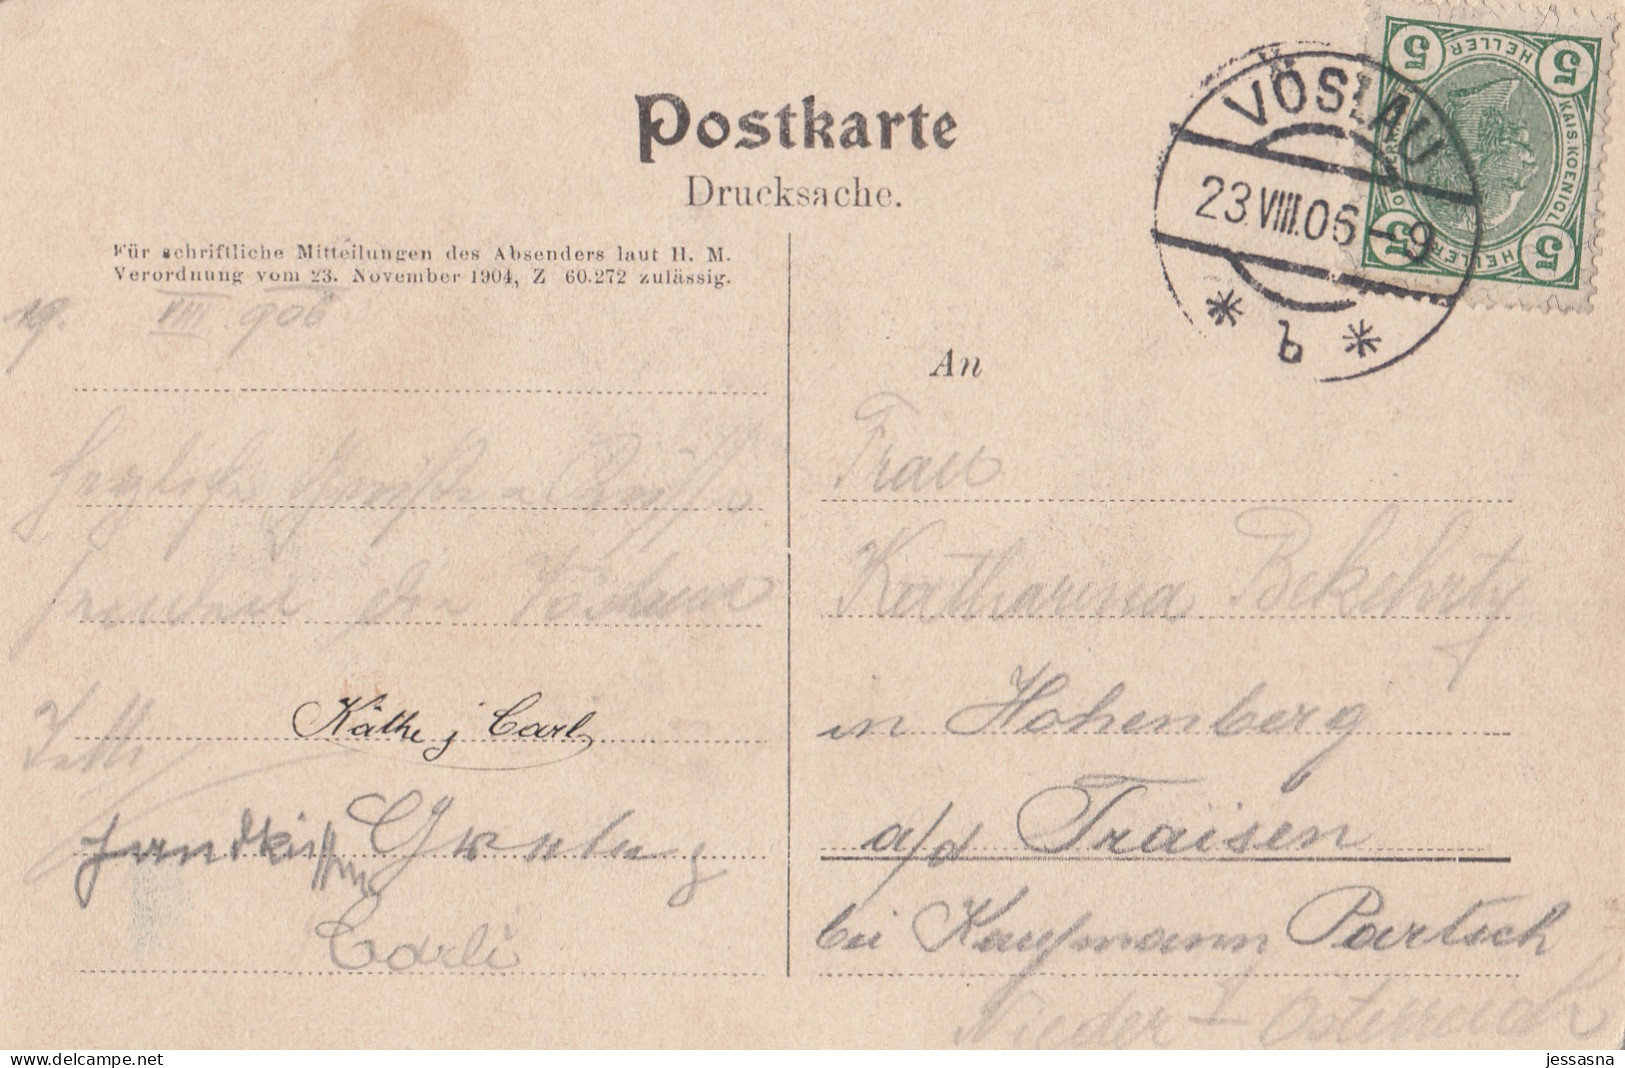 Postkarte
Drucksache.
Für schriftliche Mitteilungen des Absenders laut H. M.
Verordnung vom 23. November 1904, Z 60.272 zulässig.
VÖSLAU
23.VIII.06-9
* b *
5 HELLER 5
KAIS. KOENIGL.
5 HELLER 5
19. VIII 906
Herzliche Grüße
senden die Vöslauer
Käthe j Carl
Handküsse
Carli
An
Frau
Katharina Bekehrty
in Hohenberg
a/d Traisen
bei Kaufmann Partsch
Nieder-Österreich
jessasna